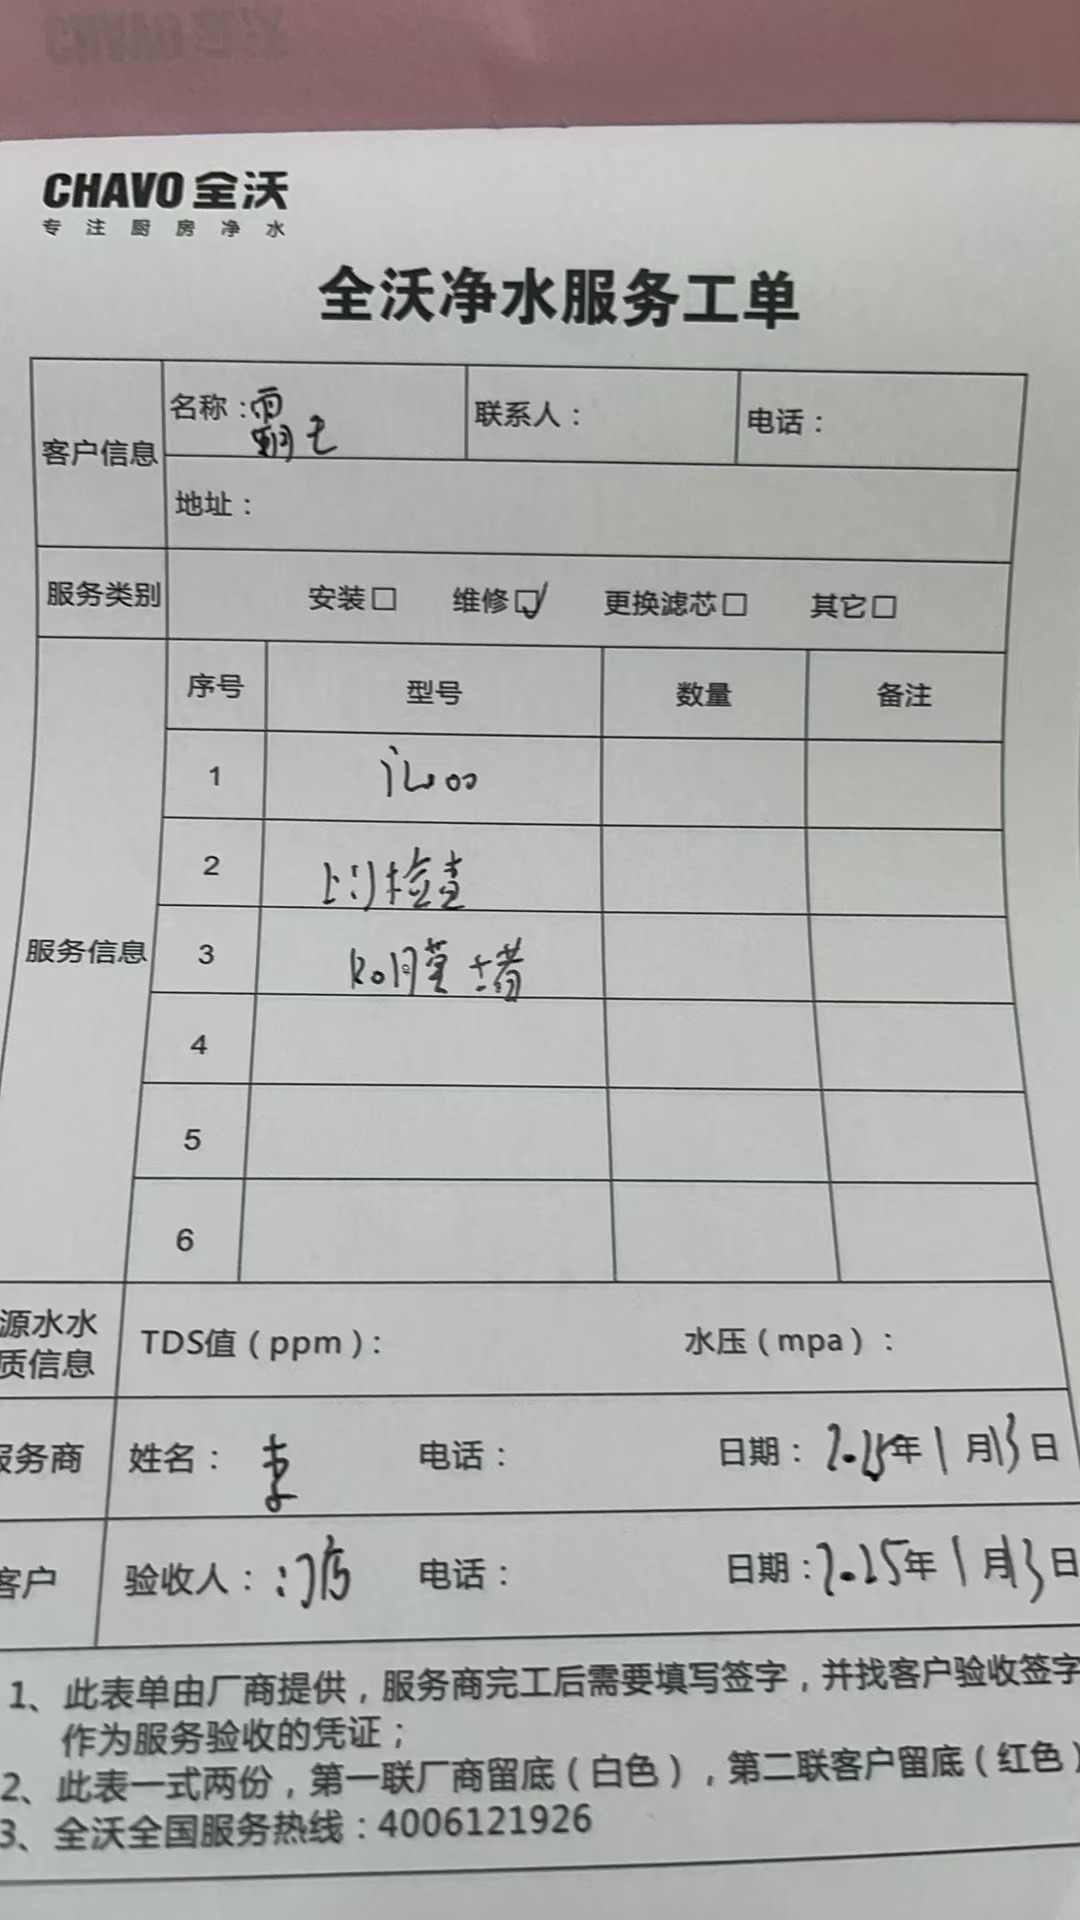 CHAVO 全沃
专注厨房净水
全沃净水服务工单
客户信息
名称：霸王
联系人：
电话：
地址：
服务类别
安装□ 维修☑ 更换滤芯□ 其它□
服务信息
序号 型号 数量 备注
1
2 上门检查
3 RO膜堵
4
5
6
源水水
质信息
TDS值（ppm）： 水压（mpa）：
服务商 姓名：李 电话： 日期：2025年1月13日
客户 验收人： 电话： 日期：2025年1月13日
1、此表单由厂商提供，服务商完工后需要填写签字，并找客户验收签字
作为服务验收的凭证；
2、此表一式两份，第一联厂商留底（白色），第二联客户留底（红色）
3、全沃全国服务热线：4006121926